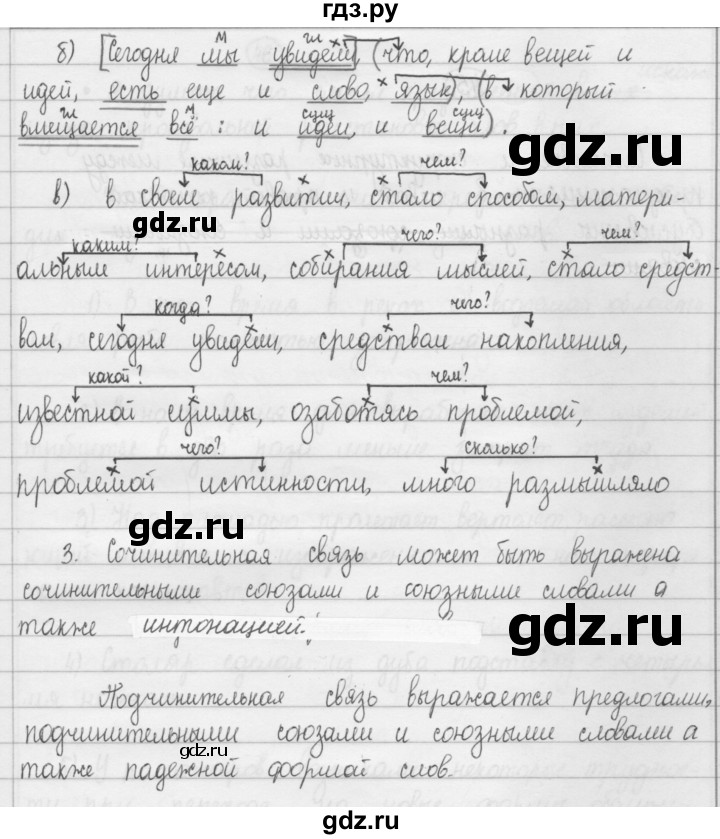 гдз.ру
б) [Сегодня мы увидели], (что, кроме вещей и
идей, есть еще и слово, язык), (в который
вмещается всё: и идеи, и вещи).
каком? чем?
в) в своем развитии, стало способом, матери-
каким? чего? чем?
альным интересом, собирания мыслей, стало средст-
когда? чего?
вам, сегодня увидели, средствам накопления,
какой? чем?
известной суммы, озаботясь проблемой,
чего? сколько?
проблемой истинности, много размышляло
3. Сочинительная связь может быть выражена
сочинительными союзами и союзными словами а
также интонацией.
Подчинительная связь выражается предлогами,
подчинительными союзами и союзными словами а
также падежной формой слов.
gdz.ru
gdz.ru
gdz.ru
gdz.ru
gdz.ru
gdz.ru
gdz.ru
gdz.ru